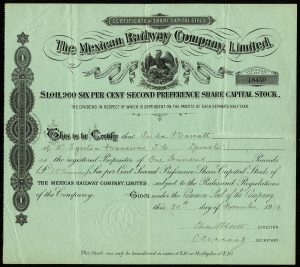 CERTIFICATE OF SHARE CAPITAL STOCK
The Mexican Railway Company, Limited.
£1,011,960 SIX PER CENT SECOND PREFERENCE SHARE CAPITAL STOCK.
THE DIVIDEND IN RESPECT OF WHICH IS DEPENDENT ON THE PROFITS OF EACH SEPARATE HALF YEAR
This is to Certify that
of Egerton S.W. Spinster
as the registered Proprietor of One Hundred Pounds
Six per Cent Second Preference Share Capital Stock of
THE MEXICAN RAILWAY COMPANY, LIMITED subject to the Rules and Regulations
of the Company. Given under the Common Seal of the Company
this 20th day of November 19
DIRECTOR
SECRETARY
This Stock can only be transferred in sums of £10 or Multiples of £10.